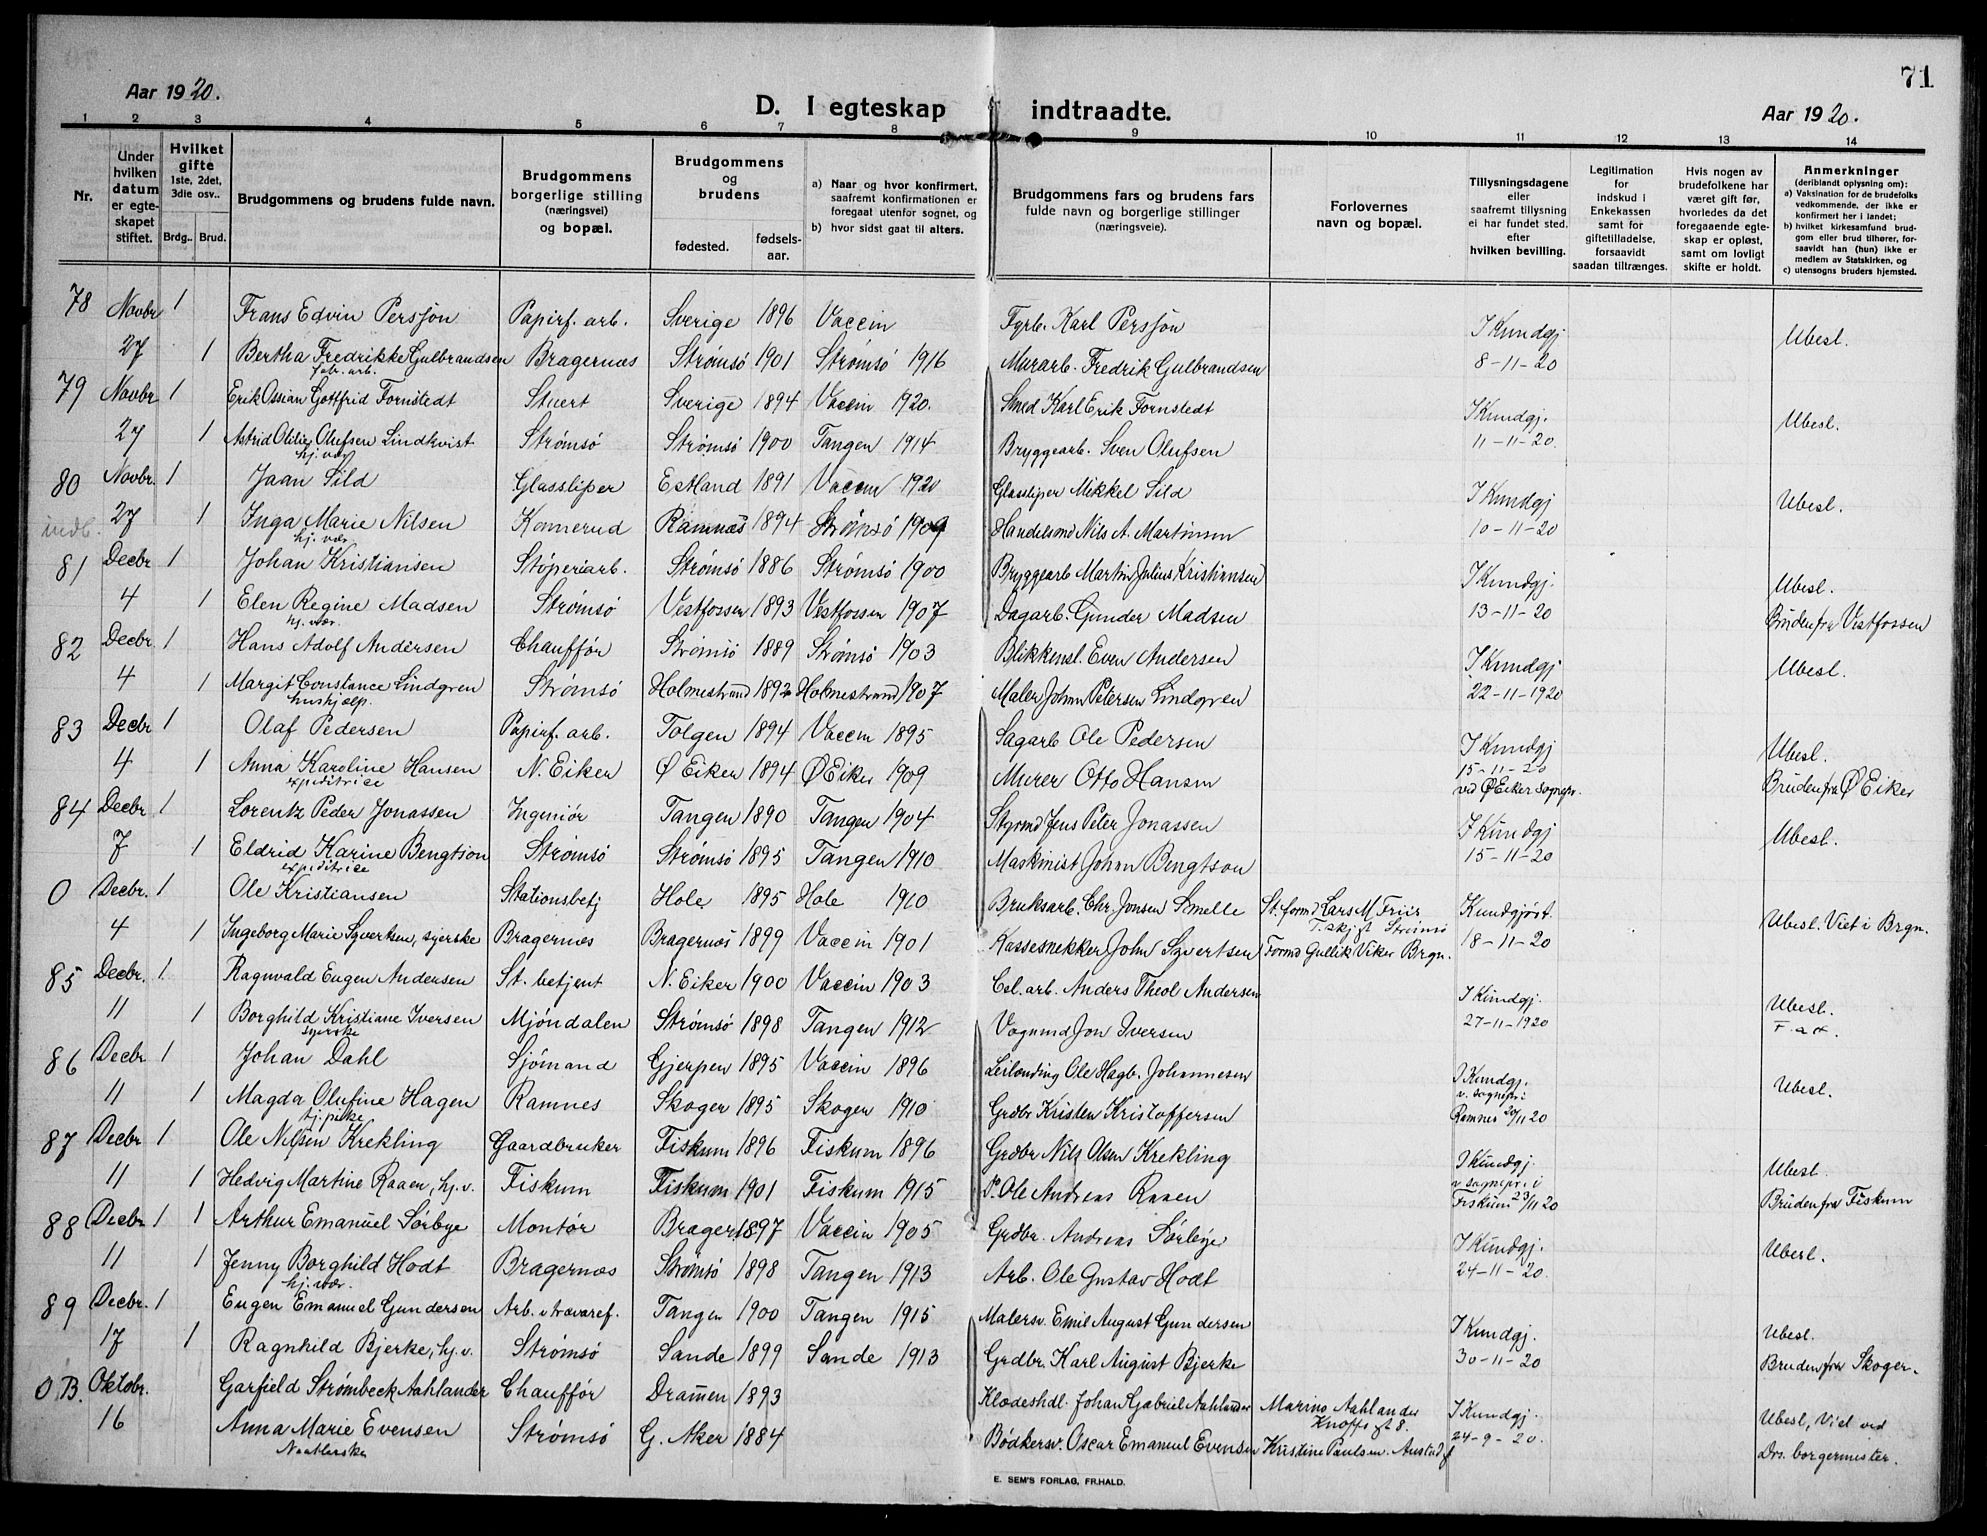 71
Aar 1920.
D. I egteskap indtraadte.
Aar 1920.
1 2 3 4 5 6 7 8 9 10 11 12 13 14
Nr.
Under hvilken datum er egteskapet stiftet.
Hvilket gifte 1ste, 2det, 3die osv..
Brdg.. Brud.
Brudgommens og brudens fulde navn.
Brudgommens borgerlige stilling (næringsvei) og bopæl.
Brudgommens og brudens
fødested. fødselsaar.
a) Naar og hvor konfirmert, saafremt konfirmationen er foregaat utenfor sognet, og
b) hvor sidst gaat til alters.
Brudgommens fars og brudens fars fulde navn og borgerlige stillinger (næringsveie).
Forlovernes navn og bopæl.
Tillysningsdagene eller saafremt tillysning ei har fundet sted. efter hvilken bevilling.
Legitimation for indskud i Enkekassen samt for giftetilladelse, forsaavidt saadan tiltrænges.
Hvis nogen av brudefolkene har været gift før, hvorledes da det foregaaende egteskap er opløst, samt om lovligt skifte er holdt.
Anmerkninger (deriblandt oplysning om):
a) Vaksination for de brudefolks vedkommende, der ikke er konfirmert her i landet;
b) hvilket kirkesamfund brudgom eller brud tilhører, forsaavidt han (hun) ikke er medlem av Statskirken, og
c) utensogns bruders hjemsted.
78 Novbr 1 Frans Edvin Persson Papirf. arb. Sverige 1896 Vaccin Fyrb. Karl Persson I Kundgj
27 1 Bertha Fredrikke Gulbrandsen Bragernæs Strømsö 1901 Strømsö 1916 Murarb. Fredrik Gulbrandsen 8-11-20 Ubesl.
fabr. arb.
79 Novbr 1 Erik Ossian Gottfrid Fornstedt Stuert Sverige 1894 Vaccin 1920. Smed Karl Erik Fornstedt I Kundgj.
27 1 Astrid Otilie Olufsen Lindkvist Strømsö Strømsö 1900 Tangen 1914 Bryggearb. Sven Olufsen 11-11-20. Ubesl.
hj. vær
80 Novbr. 1 Jaan Sild Glassliper Estland 1891 Vaccin 1920 Glassliper Mikkel Sild I Kundgj
indb. 27 1 Inga Marie Nilsen Konnerud Ramnæs 1894 Strømsö 1909 Handelsmd Nils A. Martinsen 10-11-20 Ubesl.
hj. vær
81 Decbr 1 Johan Kristiansen Støperiarb. Strømsö 1886 Strømsö 1900 Bryggearb Martin Julius Kristiansen I Kundgj. Ubesl.
4 1 Elen Regine Madsen Strømsö Vestfossen 1893 Vestfossen 1907 Dagarb. Gunder Madsen 13-11-20 Bruden fra Vestfossen
hj. vær.
82 Decbr. 1 Hans Adolf Andersen Chauffør Strømsö 1889 Strømsö 1903 Blikkensl. Even Andersen I Kundgj
4 1 Margit Constance Lindgren Strømsö Holmestrand 1892 Holmestrand 1907 Maler Johan Petersen Lindgren 22-11-1920 Ubesl.
hushjælp.
83 Decbr 1 Olaf Pedersen Papirf. arb. Tolgen 1894 Vaccin 1895 Sagarb Ole Pedersen I Kundgj Ubesl.
4 1 Anna Karoline Hansen N. Eiker Ø Eiker 1894 Ø Eiker 1909 Murer Otto Hansen 15-11-20 ved Ø Eiker sognepr. Bruden fra Ø Eiker
expeditrice
84 Decbr. 1 Lorentz Peder Jonassen Ingeniør Tangen 1890 Tangen 1904 Styrmd Jens Peter Jonassen I Kundgj
7 1 Eldrid Karine Bengtson Strømsö Strømsö 1895 Tangen 1910 Maskinist Johan Bengtson 15-11-20 Ubesl.
expeditrice
0 Decbr. 1 Ole Kristiansen Stationsbetj Hole 1895 Hole 1910 Bruksarb. Chr Jonsen Smelle St. formd Lars M Friis Kundgjøst.
T. skj. gt Strømsö
4 1 Ingeborg Marie Syvertsen, syerske Bragernæs Bragernæs 1899 Vaccin 1901 Kassesnekker John Syvertsen Formd Gullik Viker Brgn. 18-11-20 Ubesl. Viet i Brgn.
85 Decbr. 1. Ragnvald Eugen Andersen St. betjent N. Eiker 1900 Vaccin 1903 Cel. arb. Anders Theol Andersen I Kundgj.
11 1 Borghild Kristiane Iversen Mjøndalen Strømsö 1898 Tangen 1912 Vognmd Jon Iversen 27-11-1920 Ubesl.
syerske
86 Decbr 1 Johan Dahl Sjømand Gjerpen 1895 Vaccin 1896 Leilending Ole Hagb. Johannesen I Kundgj. v. sognepr. i
11 1 Magda Olufine Hagen Ramnes Skoger 1895 Skoger 1910 Grdbr Kristen Kristoffersen Ramnes 20/11 20 Ubesl.
tj. pike
87 Decbr. 1 Ole Nilsen Krekling Gaardbruker Fiskum 1896 Fiskum 1896 Grdbr Nils Olsen Krekling I Kundgj. v sognepr. i Ubesl.
11 1 Hedvig Martine Raaen, hj. v. Fiskum Fiskum 1901 Fiskum 1915 Ole Andreas Raaen Fiskum 23/11 20 Bruden fra Fiskum
88 Decbr 1 1 Arthur Emanuel Sørbye Montør Brager. 1897 Vaccin 1905 Grdbr. Andreas Sørbye I Kundgj.
11 1 Jenny Borghild Hodt Bragernæs Strømsö 1898 Tangen 1913 Arb. Ole Gustav Hodt 24-11-20. Ubesl.
hj. vær.
89 Decbr. 1 Eugen Emanuel Gundersen Arb. v travaref. Tangen 1900 Tangen 1915 Malersv. Emil August Gundersen I Kundgj. Ubesl.
17 1 Ragnhild Bjerke, hj. v. Strømsö Sande 1899 Sande 1913 Grdbr. Karl August Bjerke 30-11-20 Bruden fra Skoger.
0 B. Oktobr. Garfield Strømbeck Aahlander Chauffør Dramen 1893 Klædeshdl. Johan Gabriel Aahlander Marino Aahlander I Kundgj.
Knoffs gt 8.
16 Anna Marie Evensen Strømsö G. Aker 1884 Bødkersv. Oscar Emanuel Evensen Kristine Paulsen. 24-9-20. Ubesl, Viet ved
Drs. borgermester.
E. SEM'S FORLAG, FR.HALD.